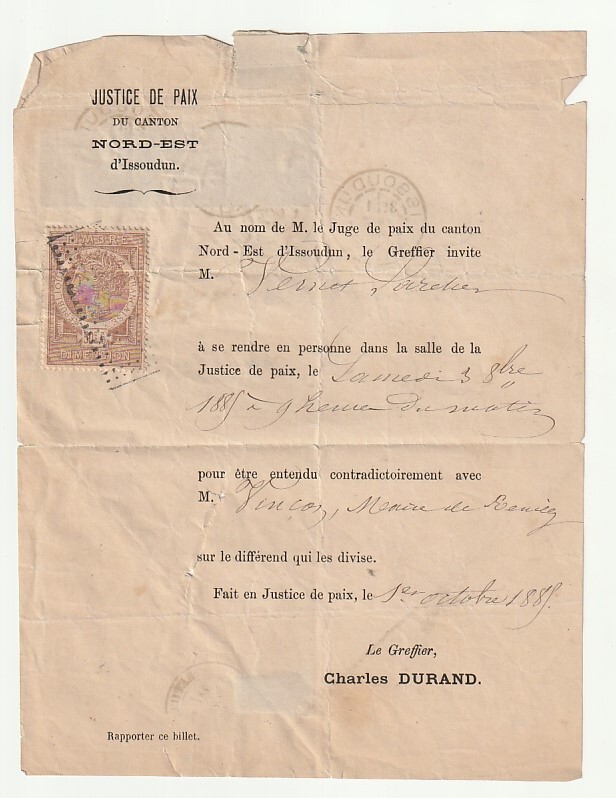 JUSTICE DE PAIX
DU CANTON
NORD-EST
d'Issoudun.
Au nom de M. le Juge de paix du canton
Nord-Est d'Issoudun, le Greffier invite
M. Vernet
à se rendre en personne dans la salle de la
Justice de paix, le Samedi 3 8bre
1885 à 9 heures du matin
pour être entendu contradictoirement avec
M. Vinçon, Maire de
sur le différend qui les divise.
Fait en Justice de paix, le 1er octobre 1885.
Le Greffier,
Charles DURAND.
Rapporter ce billet.
TIMBRE
DIMENSION
ISSOUDUN